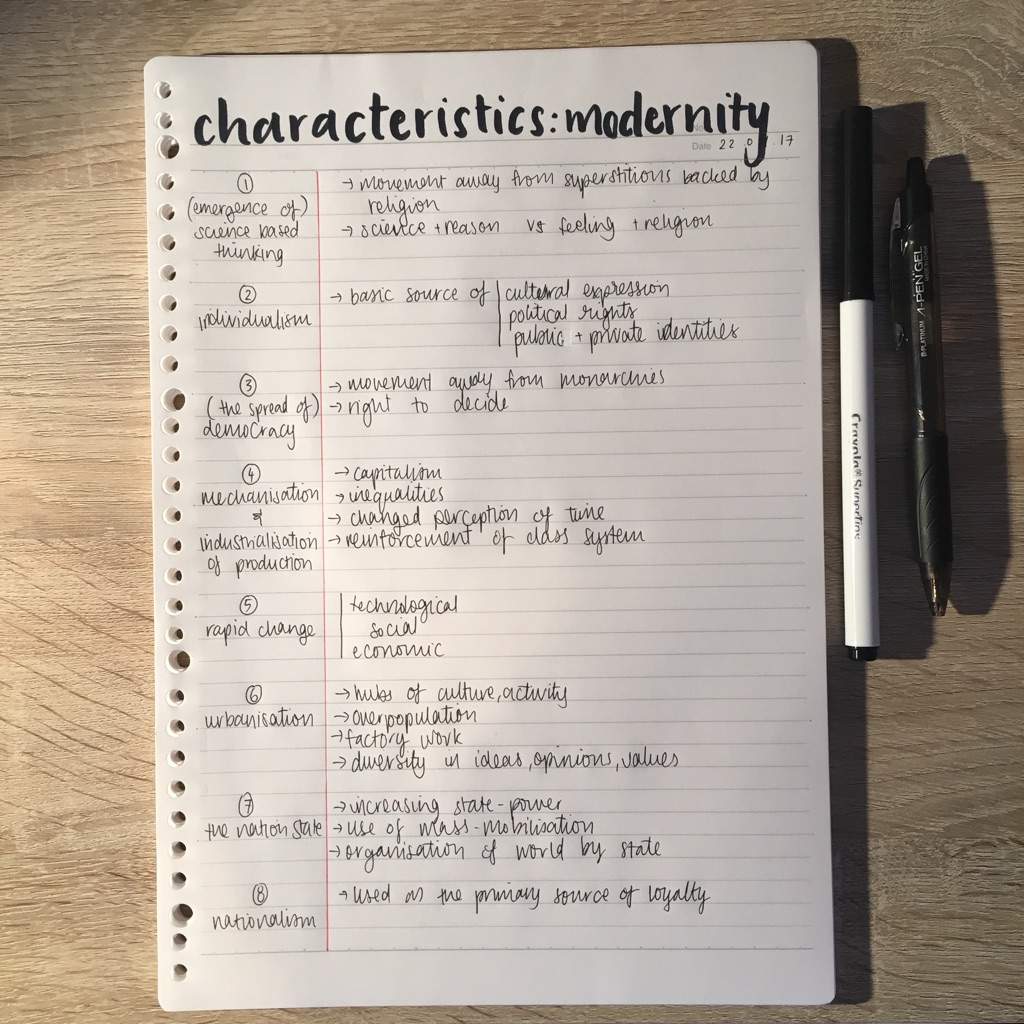 characteristics: modernity
Date 22 0 17
①
(emergence of)
science based
thinking
→ movement away from superstitions backed by
religion
→ science + reason vs feeling + religion
②
individualism
→ basic source of
cultural expression
political rights
public + private identities
③
(the spread of)
democracy
→ movement away from monarchies
→ right to decide
④
mechanisation
&
industrialisation
of production
→ capitalism
→ inequalities
→ changed perception of time
→ reinforcement of class system
⑤
rapid change
technological
social
economic
⑥
urbanisation
→ hubs of culture, activity
→ overpopulation
→ factory work
→ diversity in ideas, opinions, values
⑦
the nation state
→ increasing state-power
→ use of mass-mobilisation
→ organisation of world by state
⑧
nationalism
→ used as the primary source of loyalty
Crayola® Supertips
PLATINUM A-PEN GEL